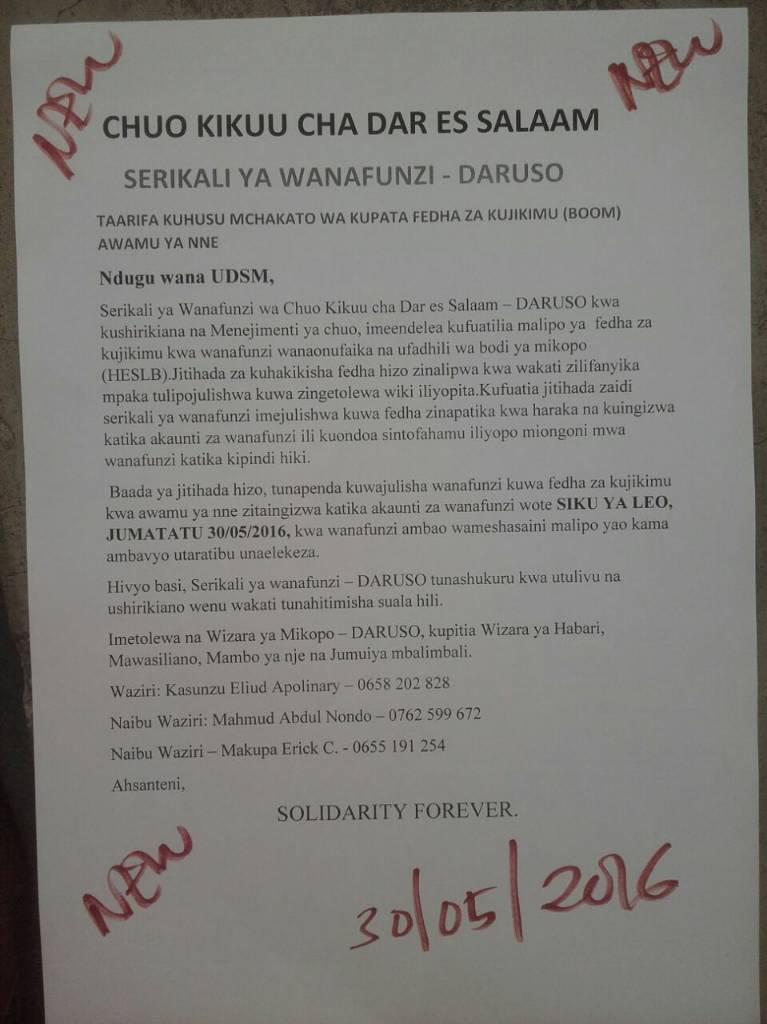 NEW
NEW
CHUO KIKUU CHA DAR ES SALAAM
SERIKALI YA WANAFUNZI - DARUSO
TAARIFA KUHUSU MCHAKATO WA KUPATA FEDHA ZA KUJIKIMU (BOOM)
AWAMU YA NNE
Ndugu wana UDSM,
Serikali ya Wanafunzi wa Chuo Kikuu cha Dar es Salaam – DARUSO kwa
kushirikiana na Menejimenti ya chuo, imeendelea kufuatilia malipo ya fedha za
kujikimu kwa wanafunzi wanaonufaika na ufadhili wa bodi ya mikopo
(HESLB).Jitihada za kuhakikisha fedha hizo zinalipwa kwa wakati zilifanyika
mpaka tulipojulishwa kuwa zingetolewa wiki iliyopita.Kufuatia jitihada zaidi
serikali ya wanafunzi imejulishwa kuwa fedha zinapatika kwa haraka na kuingizwa
katika akaunti za wanafunzi ili kuondoa sintofahamu iliyopo miongoni mwa
wanafunzi katika kipindi hiki.
Baada ya jitihada hizo, tunapenda kuwajulisha wanafunzi kuwa fedha za kujikimu
kwa awamu ya nne zitaingizwa katika akaunti za wanafunzi wote SIKU YA LEO,
JUMATATU 30/05/2016, kwa wanafunzi ambao wameshasaini malipo yao kama
ambavyo utaratibu unaelekeza.
Hivyo basi, Serikali ya wanafunzi – DARUSO tunashukuru kwa utulivu na
ushirikiano wenu wakati tunahitimisha suala hili.
Imetolewa na Wizara ya Mikopo – DARUSO, kupitia Wizara ya Habari,
Mawasiliano, Mambo ya nje na Jumuiya mbalimbali.
Waziri: Kasunzu Eliud Apolinary – 0658 202 828
Naibu Waziri: Mahmud Abdul Nondo – 0762 599 672
Naibu Waziri – Makupa Erick C. - 0655 191 254
Ahsanteni,
SOLIDARITY FOREVER.
NEW
30/05/2016